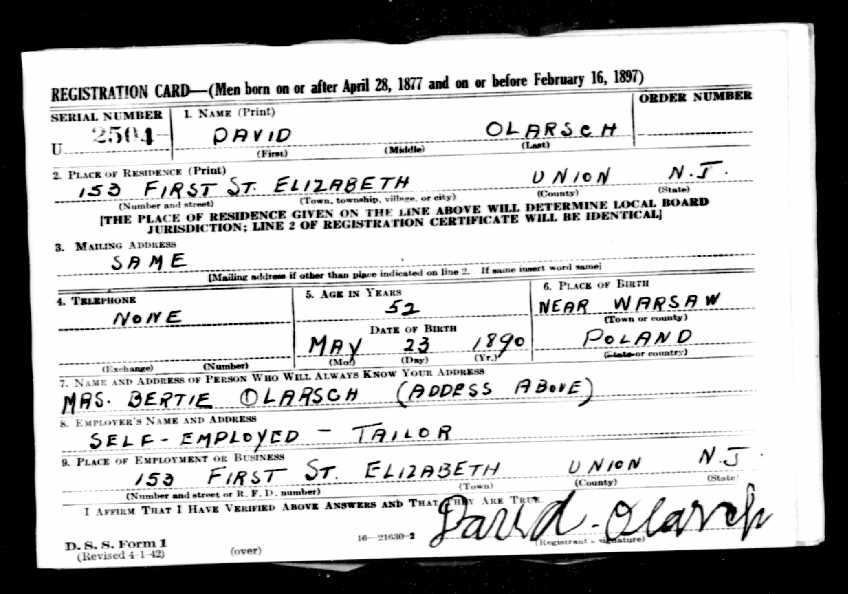 REGISTRATION CARD—(Men born on or after April 28, 1877 and on or before February 16, 1897)
SERIAL NUMBER 1. NAME (Print) ORDER NUMBER
U 2504 DAVID OLARSCH
(First) (Middle) (Last)
2. PLACE OF RESIDENCE (Print)
153 FIRST ST. ELIZABETH UNION N.J.
(Number and street) (Town, township, village, or city) (County) (State)
[THE PLACE OF RESIDENCE GIVEN ON THE LINE ABOVE WILL DETERMINE LOCAL BOARD
JURISDICTION; LINE 2 OF REGISTRATION CERTIFICATE WILL BE IDENTICAL]
3. MAILING ADDRESS
SAME
[Mailing address if other than place indicated on line 2. If same insert word same]
4. TELEPHONE 5. AGE IN YEARS 6. PLACE OF BIRTH
52 NEAR WARSAW
NONE DATE OF BIRTH (Town or county)
MAY 23 1890 POLAND
(Exchange) (Number) (Mo.) (Day) (Yr.) (State or country)
7. NAME AND ADDRESS OF PERSON WHO WILL ALWAYS KNOW YOUR ADDRESS
MRS. BERTIE OLARSCH (ADDRESS ABOVE)
8. EMPLOYER'S NAME AND ADDRESS
SELF-EMPLOYED - TAILOR
9. PLACE OF EMPLOYMENT OR BUSINESS
153 FIRST ST. ELIZABETH UNION N.J.
(Number and street or R. F. D. number) (Town) (County) (State)
I AFFIRM THAT I HAVE VERIFIED ABOVE ANSWERS AND THAT THEY ARE TRUE.
David Olarsch
D. S. S. Form 1 16—21630-2 (Registrant's signature)
(Revised 4-1-42) (over)